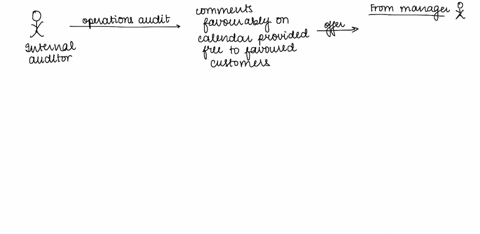 Internal
auditor
operations audit
comments
favourably on
calendar provided
free to favoured
customers
offer
From manager